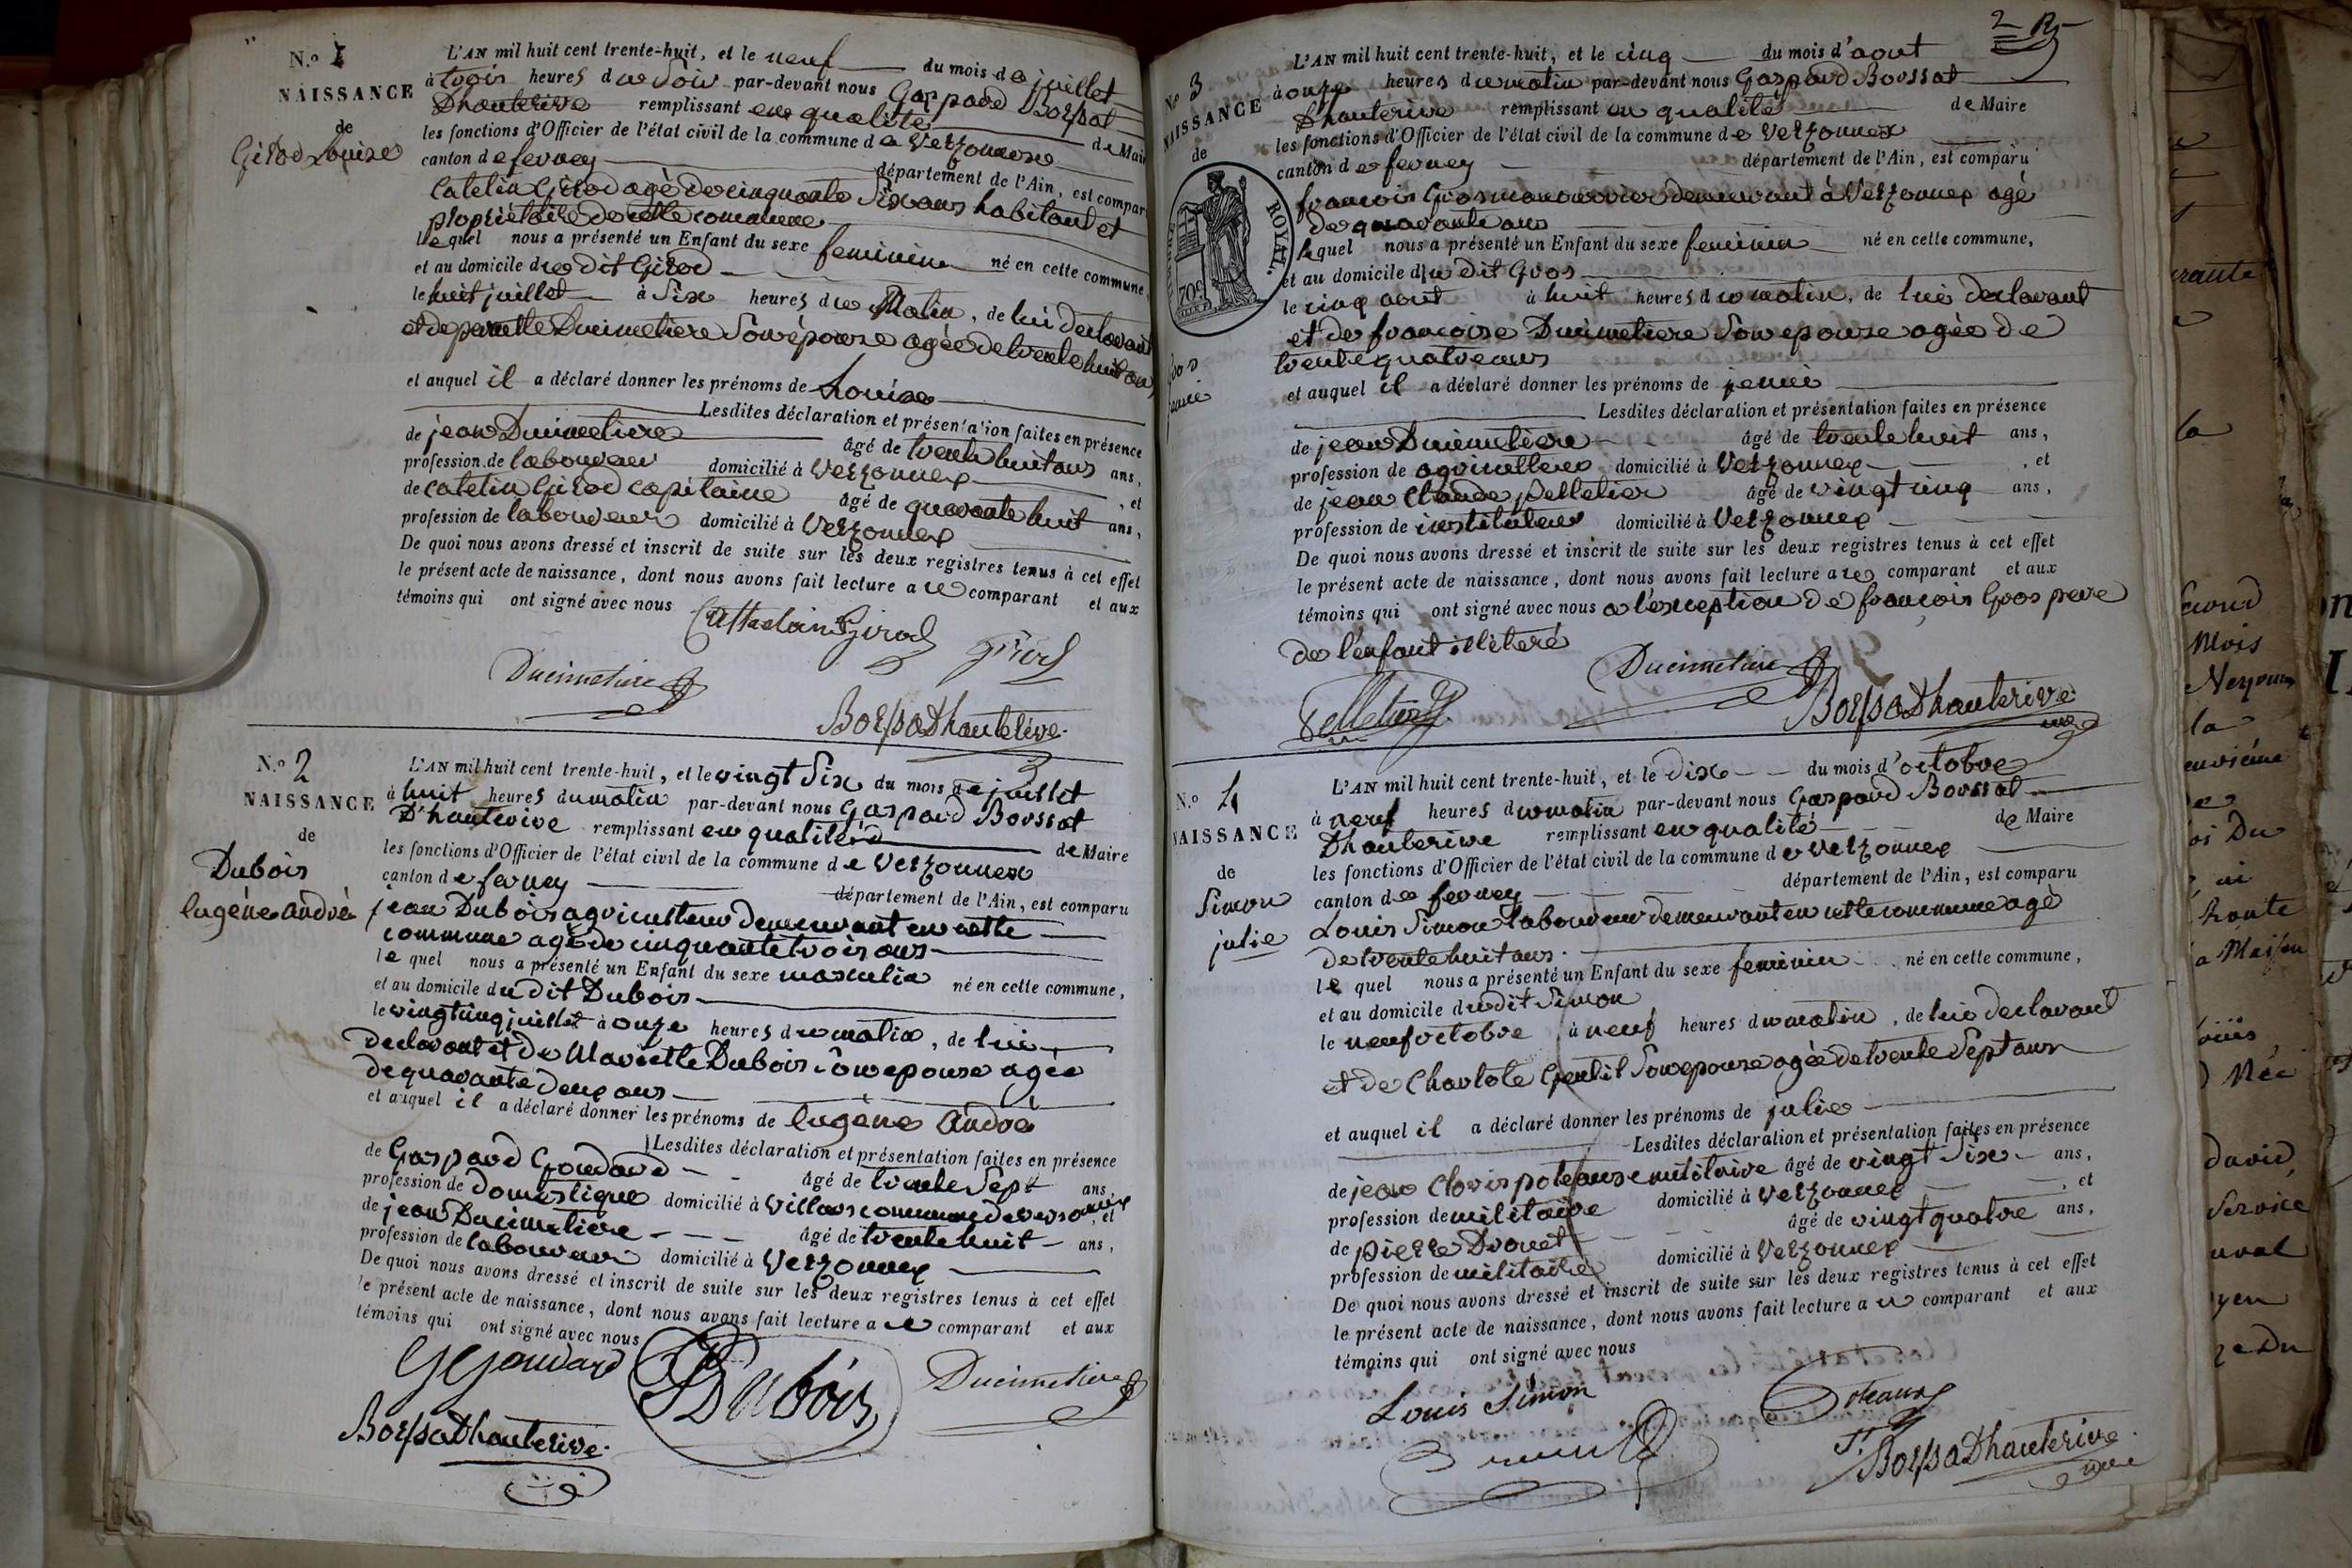 N.º 1
NAISSANCE
de
Girod Louise
L'AN mil huit cent trente-huit, et le neuf du mois de juillet
à trois heures du soir par-devant nous Gaspard Borssat
Dhauterive remplissant en qualité de Mair
les fonctions d'Officier de l'état civil de la commune de Verzonnex
canton de ferney département de l'Ain, est compar
Catelin Girod agé de cinquante six ans habitant et
propriétaire de cette commune
lequel nous a présenté un Enfant du sexe feminin né en cette commune,
et au domicile du dit Girod
le huit juillet à six heures du Matin, de lui declarant
et de pernette Ducimetiere son épouse agée de trente huit ans
et auquel il a déclaré donner les prénoms de Louise
Lesdites déclaration et présentation faites en présence
de jean Ducimetiere âgé de trente huit ans ans,
profession de laboureur domicilié à Verzonnex, et
de Catelin Girod capitaine âgé de quarante huit ans,
profession de laboureur domicilié à Verzonnex
De quoi nous avons dressé et inscrit de suite sur les deux registres tenus à cet effet
le présent acte de naissance, dont nous avons fait lecture a ce comparant et aux
témoins qui ont signé avec nous
Cattelain Girod
Girod
Ducimetiere
BorssaDhauterive
N.º 2
NAISSANCE
de
Dubois
Eugène andré
L'AN mil huit cent trente-huit, et le vingt six du mois de juillet
à huit heures du matin par-devant nous Gaspard Borssat
D'hauterive remplissant en qualité de Maire
les fonctions d'Officier de l'état civil de la commune de Verzonnex
canton de ferney département de l'Ain, est comparu
jean Dubois agriculteur demeurant en cette
commune agé de cinquante trois ans
lequel nous a présenté un Enfant du sexe masculin né en cette commune,
et au domicile du dit Dubois
le vingt cinq juillet à onze heures du matin, de lui
declarant et de Mariette Dubois son epouse agée
de quarante deux ans
et auquel il a déclaré donner les prénoms de Eugène André
Lesdites déclaration et présentation faites en présence
de Gaspard Goudard âgé de trente sept ans,
profession de domestique domicilié à Villars commune de versonnex, et
de jean Ducimetiere âgé de trente huit ans,
profession de laboureur domicilié à Verzonnex
De quoi nous avons dressé et inscrit de suite sur les deux registres tenus à cet effet
le présent acte de naissance, dont nous avons fait lecture a ce comparant et aux
témoins qui ont signé avec nous
Goudard
Dubois
Ducimetiere
BorssaDhauterive
2
N.º 3
NAISSANCE
de
Gros
jenni
ROYAL
70 c
L'AN mil huit cent trente-huit, et le cinq du mois d'aout
à onze heures du matin par-devant nous Gaspard Borssat
Dhauterive remplissant en qualité de Maire
les fonctions d'Officier de l'état civil de la commune de Verzonnex
canton de ferney département de l'Ain, est comparu
françois Gros manouvrier demeurant à Verzonnex agé
de quarante ans
lequel nous a présenté un Enfant du sexe feminin né en cette commune,
et au domicile du dit Gros
le cinq aout à huit heures du matin, de lui declarant
et de françoise Ducimetiere son epouse agée de
trente quatre ans
et auquel il a déclaré donner les prénoms de jenni
Lesdites déclaration et présentation faites en présence
de jean Ducimetiere âgé de trente huit ans,
profession de agriculteur domicilié à Verzonnex, et
de jean Claude pelletier âgé de vingt cinq ans,
profession de instituteur domicilié à Verzonnex
De quoi nous avons dressé et inscrit de suite sur les deux registres tenus à cet effet
le présent acte de naissance, dont nous avons fait lecture a ce comparant et aux
témoins qui ont signé avec nous a l'exception de françois Gros pere
de l'enfant illiteré
Pelletier
Ducimetiere
BorssaDhauterive
N.º 4
NAISSANCE
de
Simon
julie
L'AN mil huit cent trente-huit, et le dix du mois d'octobre
à neuf heures du matin par-devant nous Gaspard Borssat
Dhauterive remplissant en qualité de Maire
les fonctions d'Officier de l'état civil de la commune de Verzonnex
canton de ferney département de l'Ain, est comparu
Louis Simon laboureur demeurant en cette commune agé
de trente huit ans
lequel nous a présenté un Enfant du sexe feminin né en cette commune,
et au domicile du dit Simon
le neuf octobre à neuf heures du matin, de lui declarant
et de Charlote Gentil son epouse agée de trente sept ans
et auquel il a déclaré donner les prénoms de julie
Lesdites déclaration et présentation faites en présence
de jean Clovis militaire âgé de vingt six ans,
profession de militaire domicilié à Verzonnex, et
de pierre Drouet âgé de vingt quatre ans,
profession de militaire domicilié à Verzonnex
De quoi nous avons dressé et inscrit de suite sur les deux registres tenus à cet effet
le présent acte de naissance, dont nous avons fait lecture a ce comparant et aux
témoins qui ont signé avec nous
Louis Simon
BorssaDhauterive